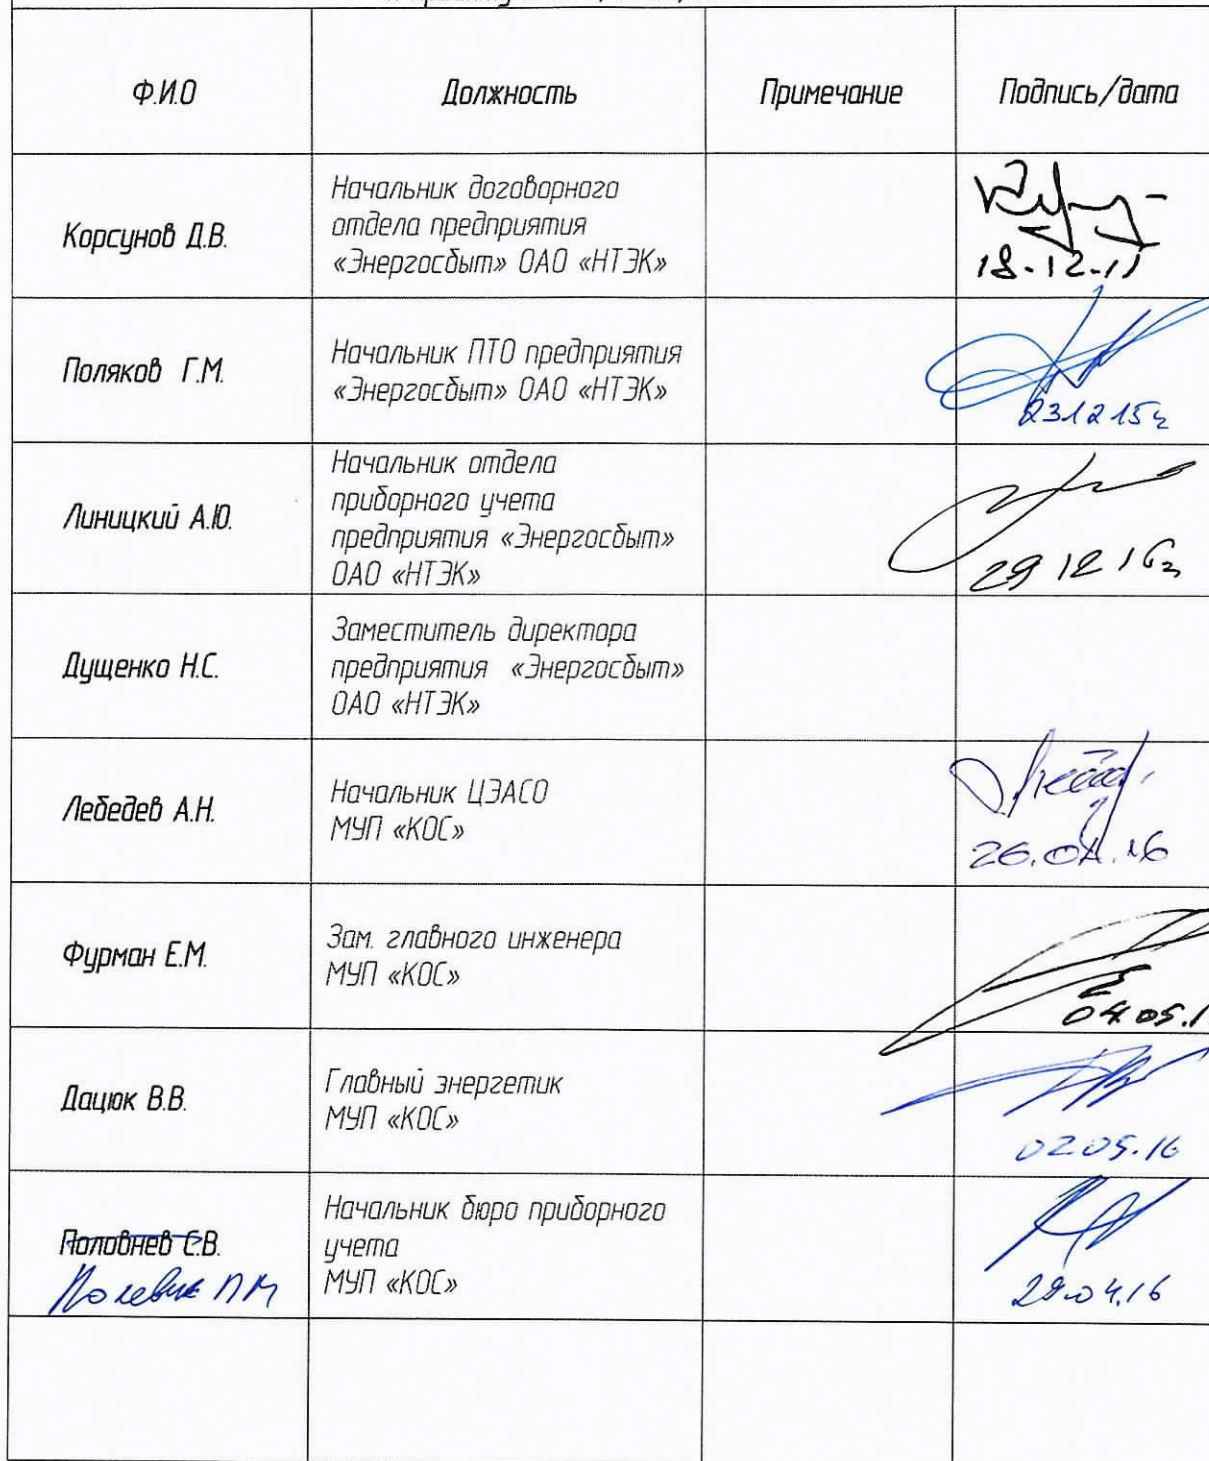 Ф.И.О
Должность
Примечание
Подпись/дата
Корсунов Д.В.
Начальник договорного
отдела предприятия
«Энергосбыт» ОАО «НТЭК»
18.12.11
Поляков Г.М.
Начальник ПТО предприятия
«Энергосбыт» ОАО «НТЭК»
23.12 15г
Линицкий А.Ю.
Начальник отдела
приборного учета
предприятия «Энергосбыт»
ОАО «НТЭК»
29 12 16г
Дущенко Н.С.
Заместитель директора
предприятия «Энергосбыт»
ОАО «НТЭК»
Лебедев А.Н.
Начальник ЦЭАСО
МУП «КОС»
26.04.16
Фурман Е.М.
Зам. главного инженера
МУП «КОС»
04.05.1
Дацюк В.В.
Главный энергетик
МУП «КОС»
02.05.16
Половнев С.В.
Начальник бюро приборного
учета
МУП «КОС»
29.04.16